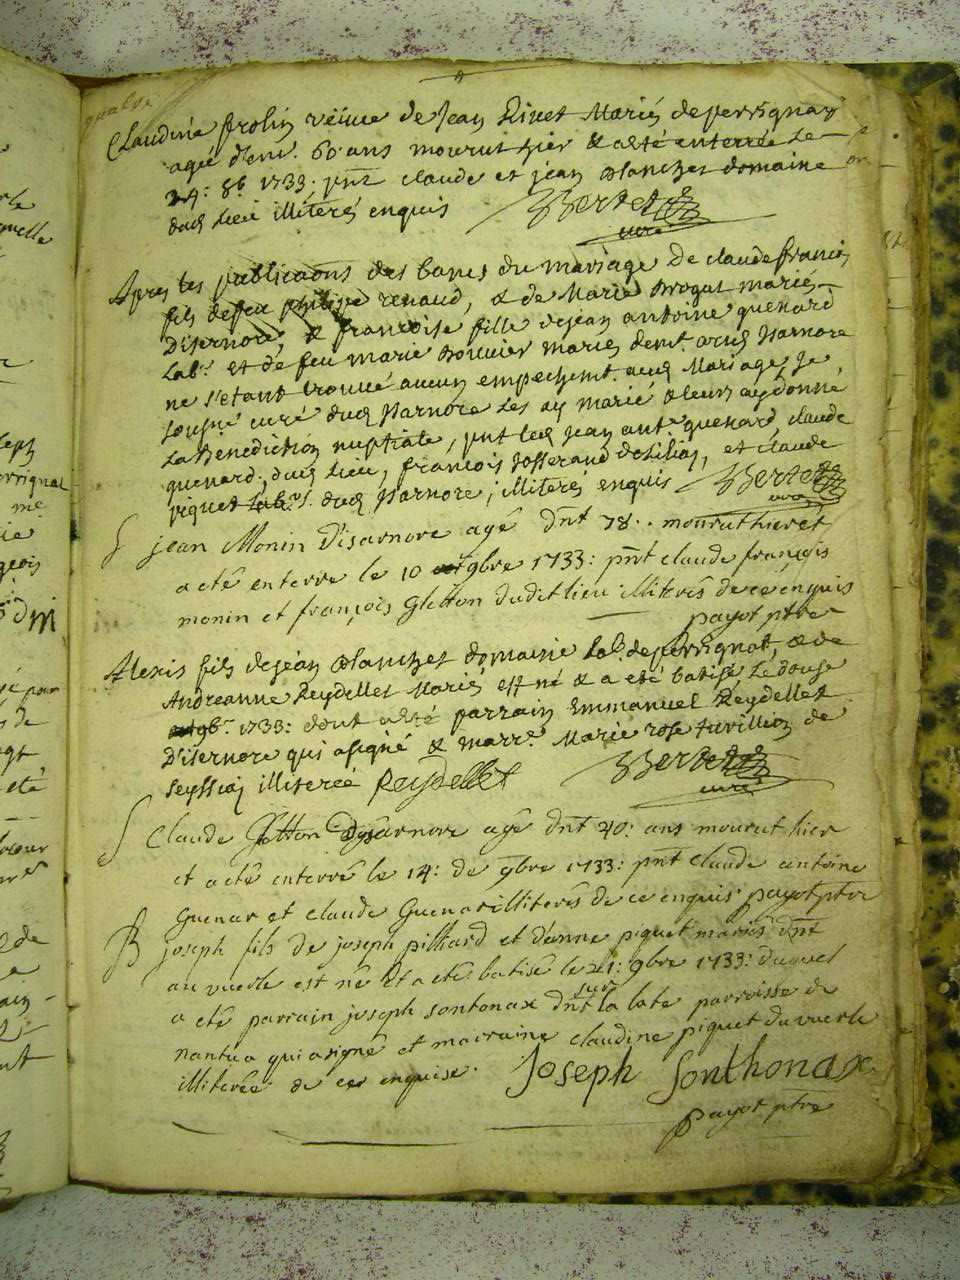 Claudine frolin véüue de Jean Rivet Mariés de perrignat
agée d'env. 60 ans mourut hier & a esté enterrée Le
24: 8b. 1733: pnt claude et jean blanchet domaine
dud Lieu illiterés enquis Bertet
curé
Apres les publicaons des bancs du mariage De claude francois
fils de feu philipe renaud, & de Marie brogat mariés
D'isernore, & francoise fille de jean antoine quenard
Lab.r et de feu marie bouvier mariés demt. aud Isarnore
ne s'etant trouvé aucun empeschemt. aud Mariage je
sousné curé dud Isarnore Les ay marié & leur ay donné
La Benediction nuptiale, pnt led jean ant.e quenard, claude
quenard, dud Lieu, francois Josserand de , et claude
piquet Lab.rs dud Isarnore, illiterés enquis Bertet
curé
jean Monin D'isarnore agé dnt 78. mourut hier et
a eté enterre le 10 9bre 1733: pnt claude françois
monin et françois Gletton dudit lieu illiterés de ce enquis
payot ptre
Alexis fils de jean blanchet domaine Lab.r de perrignat, & de
Andreanne Reydellet Mariés est né & a eté batisé Le douze
9b.re 1733: dont a esté parrain Emmanuel Reydellet
D'isernore qui a signé & marr.e Marie rose tuvillion de
seyssia illiterée Reydellet Bertet
curé
Claude Jetton Dysarnore agé dnt 40: ans mourut hier
et a eté enterré le 14: de 9bre 1733: pnt claude antoine
Guenar et claude Guenar illiterés de ce enquis payot ptre
B joseph fils de joseph pilliard et d'anne piquet mariés dnt
au vuerle est né et a eté batisé le 21: 9bre 1733: duquel
a eté parrain joseph sontonax dnt sur la late parroisse de
nantua qui a signé et marraine claudine piquet du vuerle
illiterée de ce enquise. Joseph Sonthonax
payot ptre